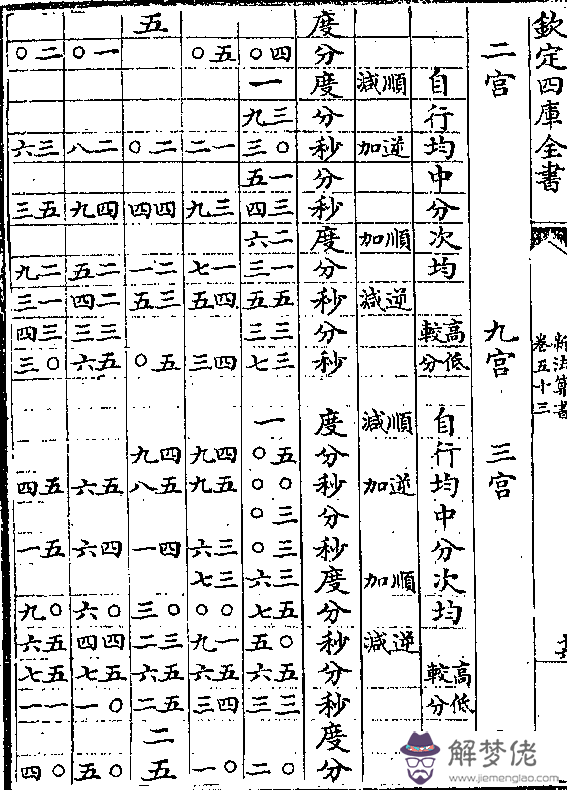 欽定四庫全書
新法算書
卷五十三
二宮 九宮 三宮
自行均中分次均 高低較分 自行均中分次均 高低較分
順減 逆加 順加 逆減 順減 逆加 順加 逆減
度分度分秒分秒度分秒分秒 度分秒分秒度分秒分秒度分
四○ 一 三九 ○三 一五 三四 二六 一三 五五 三三 三七 一 五○ ○○ 三○ 三○ 三六 五七 ○五 五六 三三 二○
五○ 一二 三九 一七 五四 四三 四九 五九 三六 三七 ○○ 一九 五六 四三 一○
五 二○ 四四 二一 三五 五○ 四九 五八 四一 ○三 三二 五六 五二 二 五
一○ 二八 四九 二五 二四 三三 五六 五六 四六 ○六 四四 五七 ○一 ○五
二○ 三六 五三 二九 一三 三四 ○三 五四 五一 ○九 五六 五七 一一 ○四
解梦佬
www.jiemenglao.com